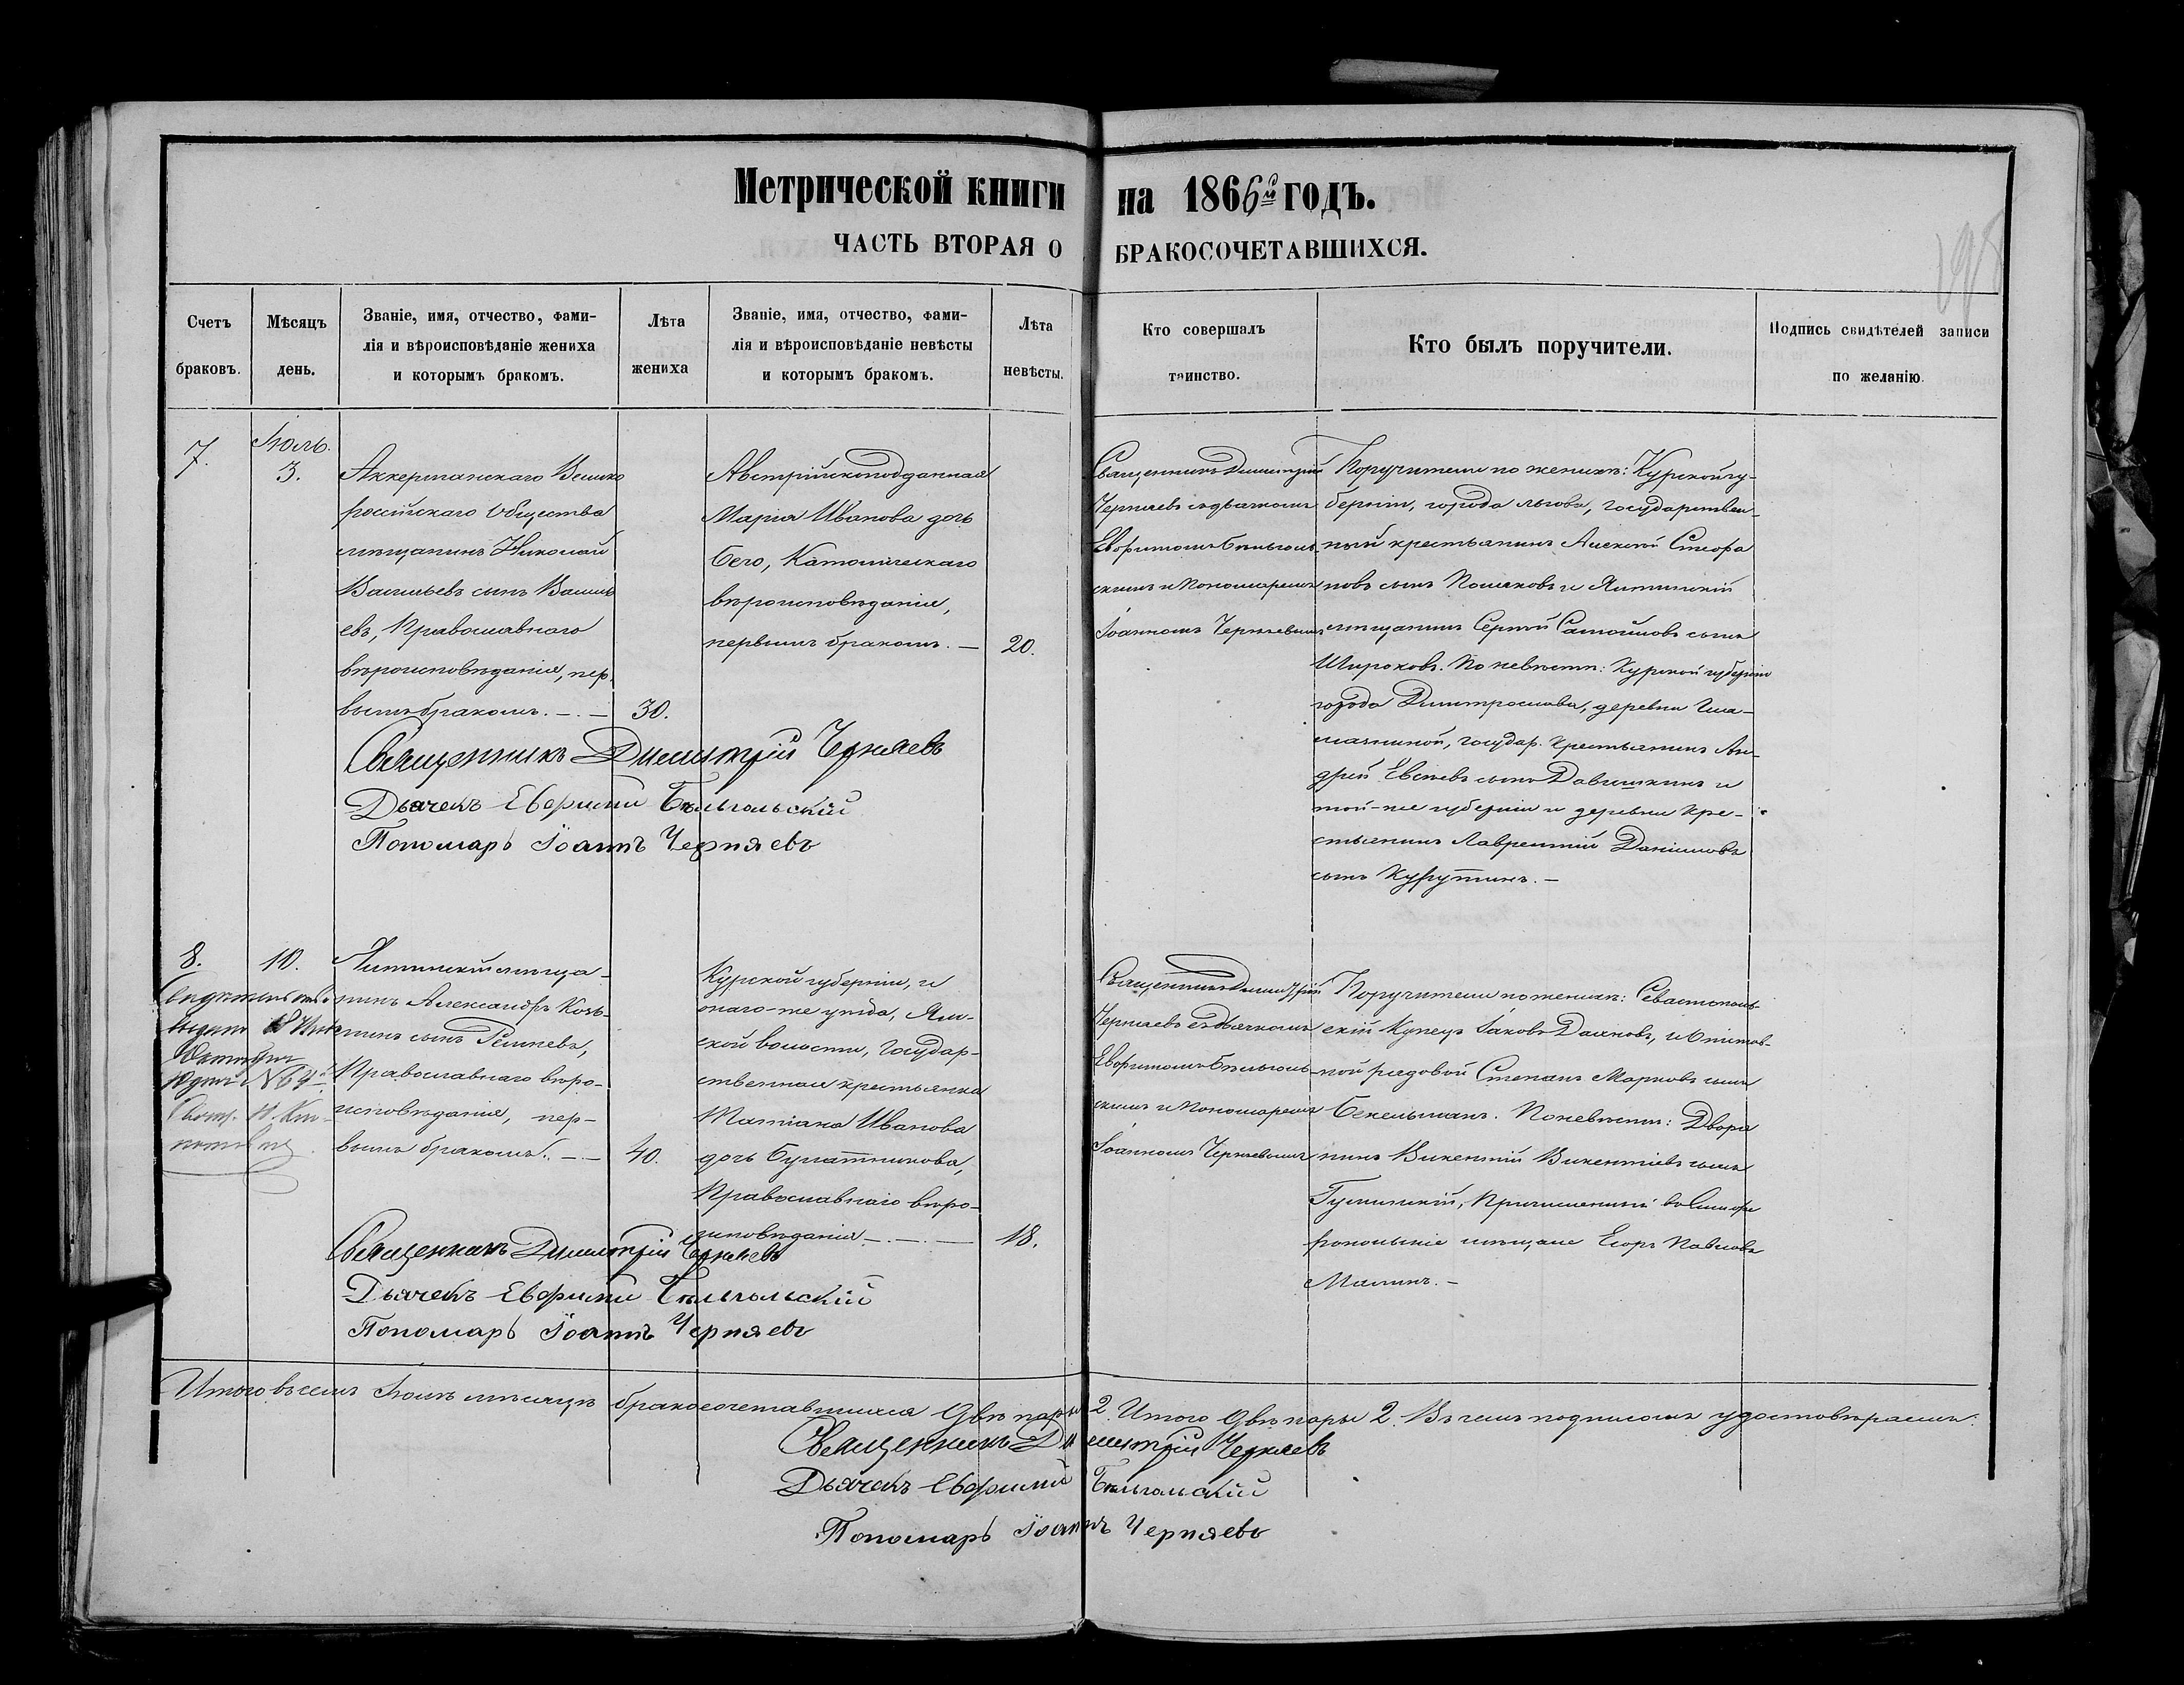 Метрической книги на 1866й годъ.
ЧАСТЬ ВТОРАЯ О БРАКОСОЧЕТАВШИХСЯ.
198
Счетъ браковъ.
Мѣсяцъ день.
Званіе, имя, отчество, фами-
лія и вѣроисповѣданіе жениха
и которымъ бракомъ.
Лѣта
жениха
Званіе, имя, отчество, фами-
лія и вѣроисповѣданіе невѣсты
и которымъ бракомъ.
Лѣта
невѣсты.
Кто совершалъ
таинство.
Кто былъ поручители.
Подпись свидѣтелей записи
по желанію.
7.
Іюль.
3.
Аккерманскаго Велико
россійскаго Общества
мѣщанинъ Николай
Васильевъ сынъ Василь
евъ, Православнаго
вѣроисповѣданія, пер
вымъ бракомъ. —
30.
Австрійскоподданная
Марія Иванова дочь
Бего, Католическаго
вѣроисповѣданія,
первымъ бракомъ. —
20.
Священникъ Димитрій
Черняевъ съ дьячкомъ
Евфиміемъ Бѣльголь
скимъ и Пономаремъ
Іоанномъ Черняевымъ
Поручители по женихѣ: Курской гу-
берніи, города Льгова, государствен-
ный крестьянинъ Алексѣй Стефа
новъ сынъ Поляковъ и Ялтинскій
мѣщанинъ Сергѣй Самойловъ сынъ
Широковъ. По невѣстѣ: Курской губерніи
города Дмитрослава, деревни
государ. крестьянинъ Ан-
дрей сынъ Давишкинъ и
той-же губерніи и деревни кре-
стьянинъ Лаврентій Даниловъ
сынъ Курутинъ. —
Священникъ Димитрій Черняевъ
Дьячекъ Евфимій Бѣльгольскій
Пономарь Іоаннъ Черняевъ
8.
10.
Свидетельство
выдано
№ 64
Ялтинскій мѣща-
нинъ Александръ Козь-
минъ сынъ
Православнаго вѣро-
исповѣданія, пер-
вымъ бракомъ. —
40.
Курской губерніи, и
онаго-же уѣзда, Ям-
ской волости, Государ-
ственная крестьянка
Татіана Иванова
дочь Булатникова,
Православнаго вѣро-
исповѣданія —
18.
Священникъ Димитрій
Черняевъ съ дьячкомъ
Евфиміемъ Бѣльголь
скимъ и Пономаремъ
Іоанномъ Черняевымъ
Поручители по женихѣ: Севастополь
скій Купецъ Іаковъ и Отстав-
ной рядовой Степанъ Марковъ сынъ
Бекельманъ. По невѣстѣ: Дворя
нинъ Викентій Викентіевъ сынъ
Причисленный въ Симфе
ропольскіе мѣщане Егоръ Павловъ
Малинъ. —
Священникъ Димитрій Черняевъ
Дьячекъ Евфимій Бѣльгольскій
Пономарь Іоаннъ Черняевъ
Итого въ семъ Іюлѣ мѣсяцѣ бракосочетавшихся двѣ пары 2. Итого двѣ пары 2. Въ чемъ подписомъ удостовѣряемъ:
Священникъ Димитрій Черняевъ
Дьячекъ Евфимій Бѣльгольскій
Пономарь Іоаннъ Черняевъ